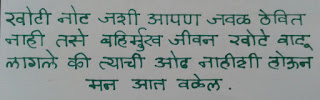 खोटी नोट जशी आपण जवळ ठेवित
नाही तसे बहिर्मुख जीवन खोटे वाटू
लागले की त्याची ओढ नाहीशी होऊन
मन आत वळेल .